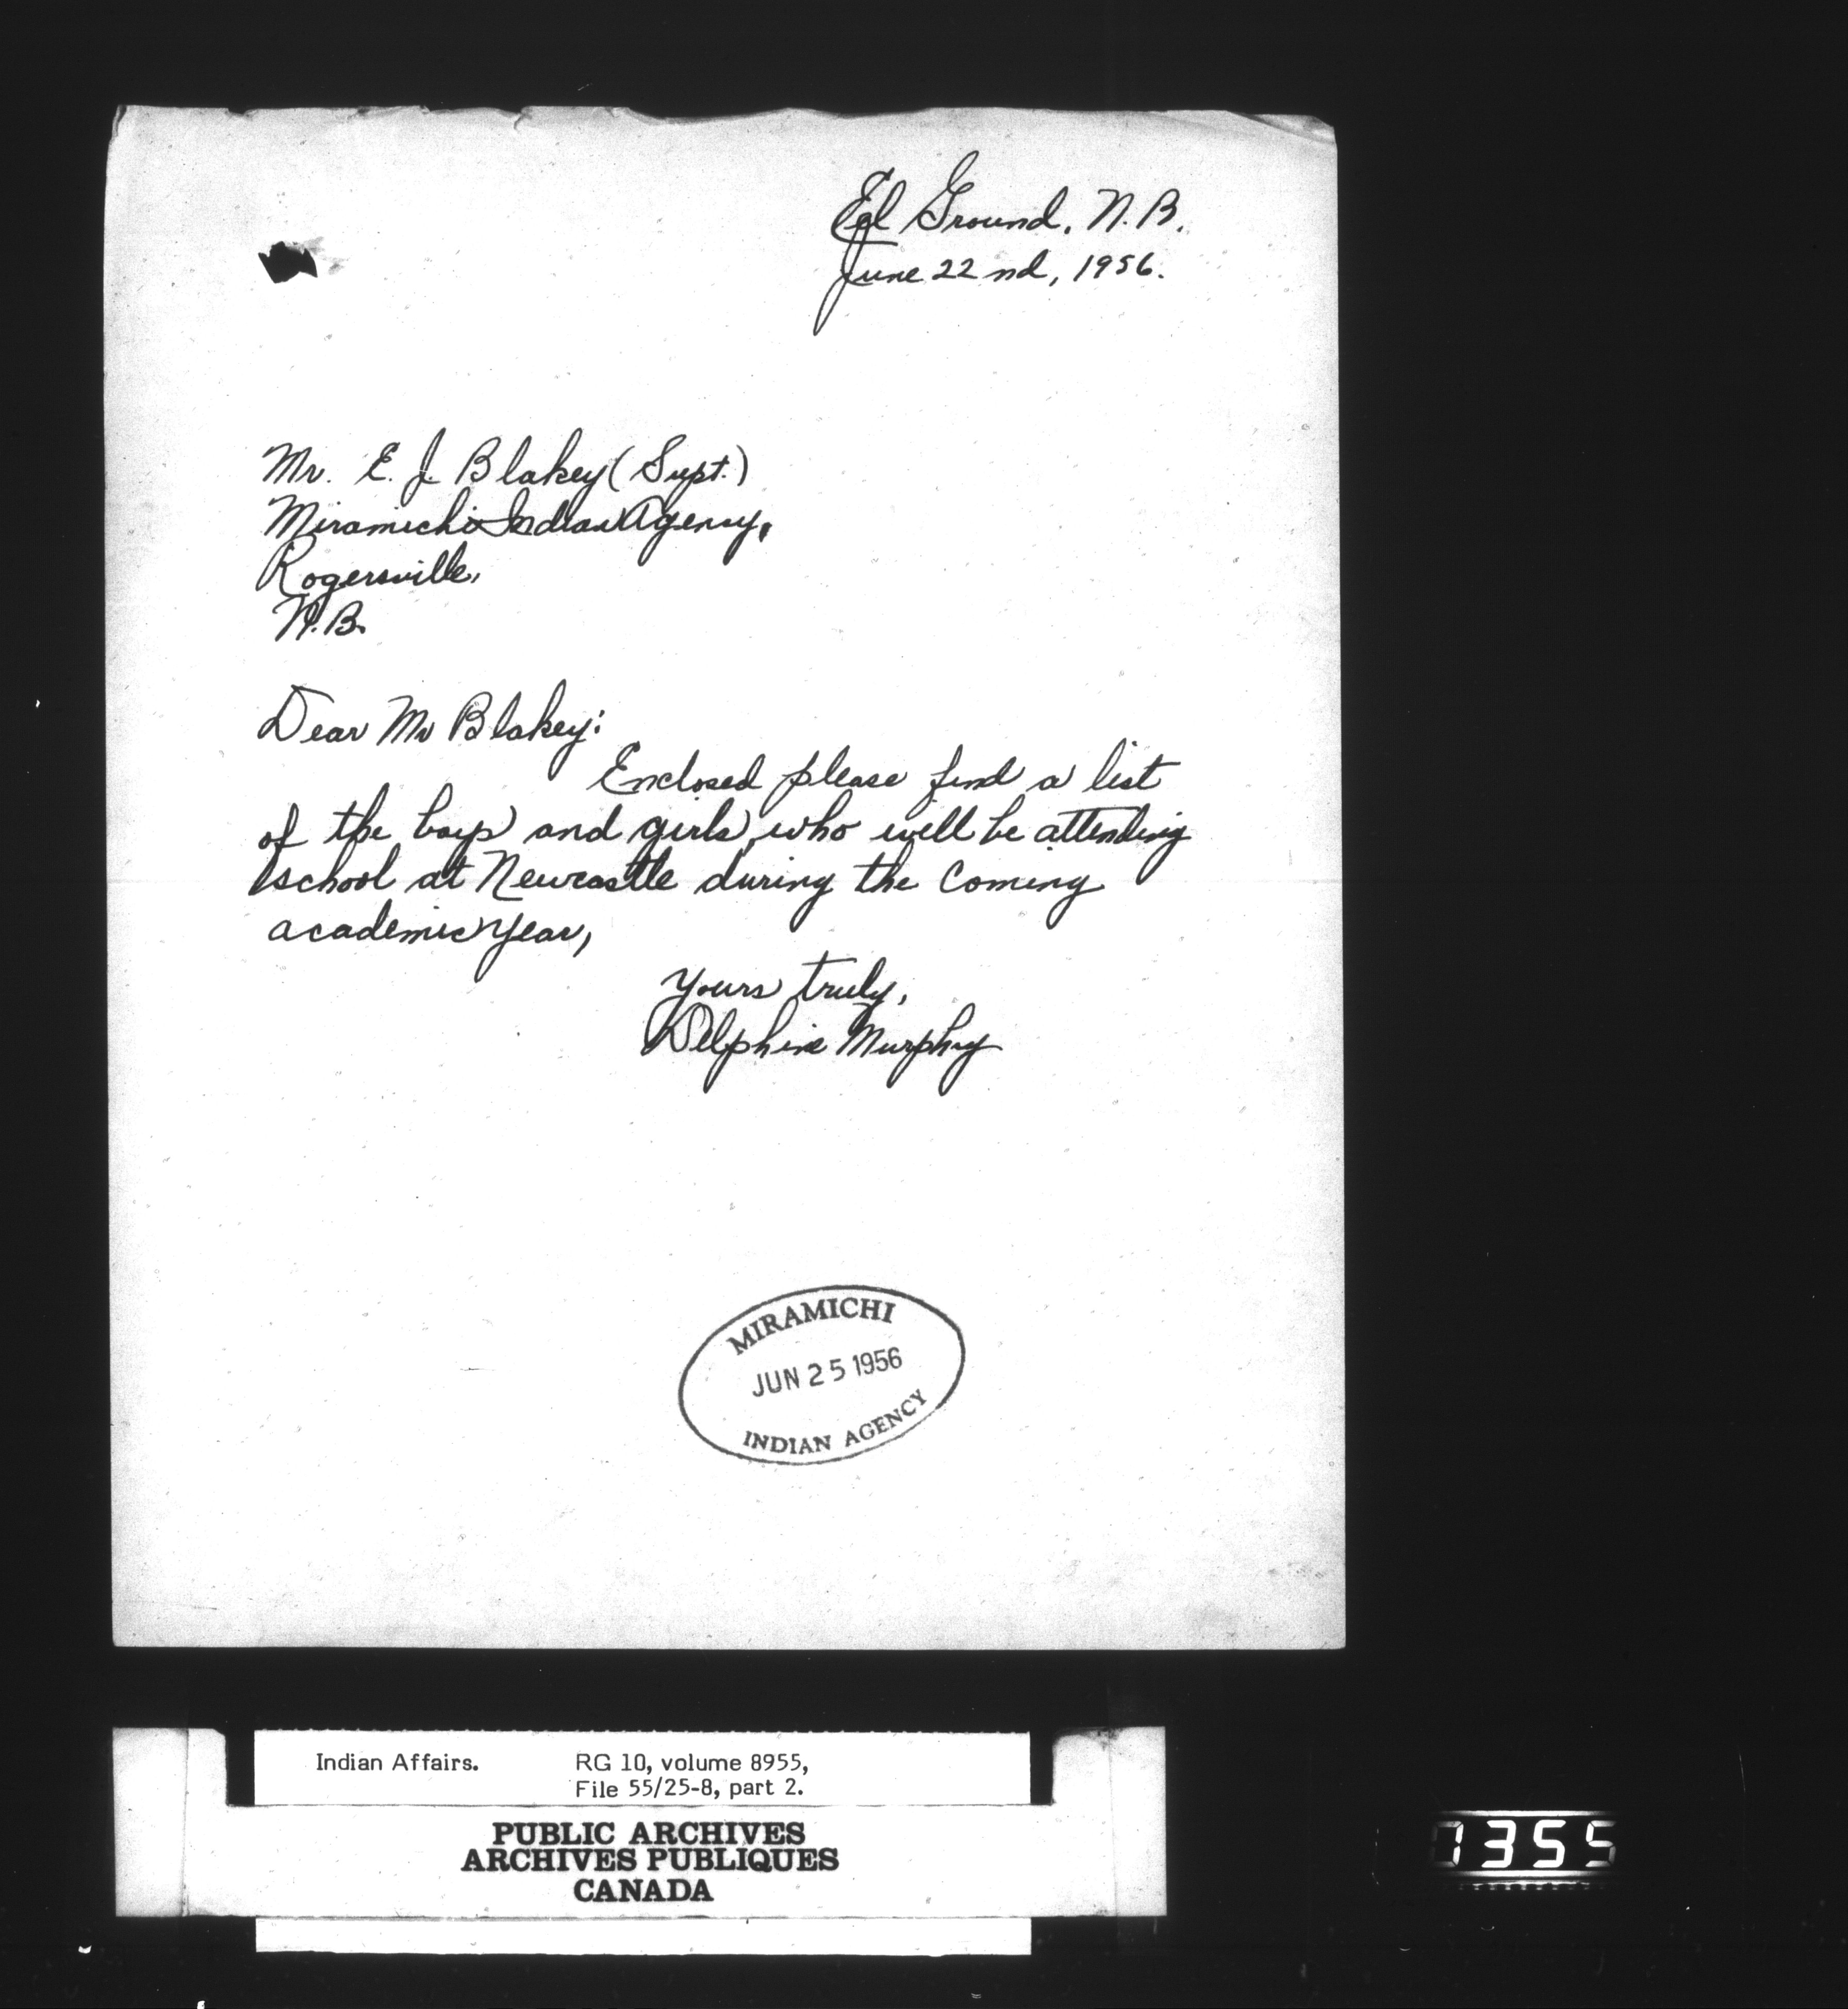 Eel Ground, N.B.
June 22nd, 1956.
Mr. E. J. Blakey (Supt.)
Miramichi Indian Agency,
Rogersville,
N.B.
Dear Mr Blakey:
Enclosed please find a list
of the boys and girls who will be attending
school at Newcastle during the coming
academic year,
Yours truly,
Delphine Murphy
MIRAMICHI
JUN 25 1956
INDIAN AGENCY
Indian Affairs. RG 10, volume 8955,
File 55/25-8, part 2.
PUBLIC ARCHIVES
ARCHIVES PUBLIQUES
CANADA
1355